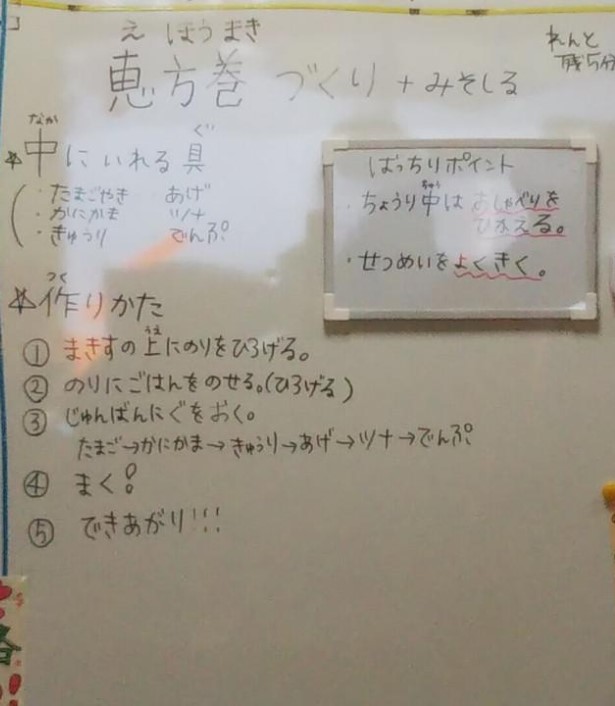 えほうまき
恵方巻 づくり + みそしる
なか
☆中にいれる具
ぐ
・たまごやき あげ
・かにかま ツナ
・きゅうり でんぷ
ばっちりポイント
・ちょうり中は おしゃべりを
ちゅう
ひかえる。
・せつめいをよくきく。
つく
☆作りかた
① まきすの上にのりをひろげる。
うえ
② のりにごはんをのせる。(ひろげる)
③ じゅんばんにぐをおく。
たまご→かにかま→きゅうり→あげ→ツナ→でんぷ
④ まく!
⑤ できあがり!!!